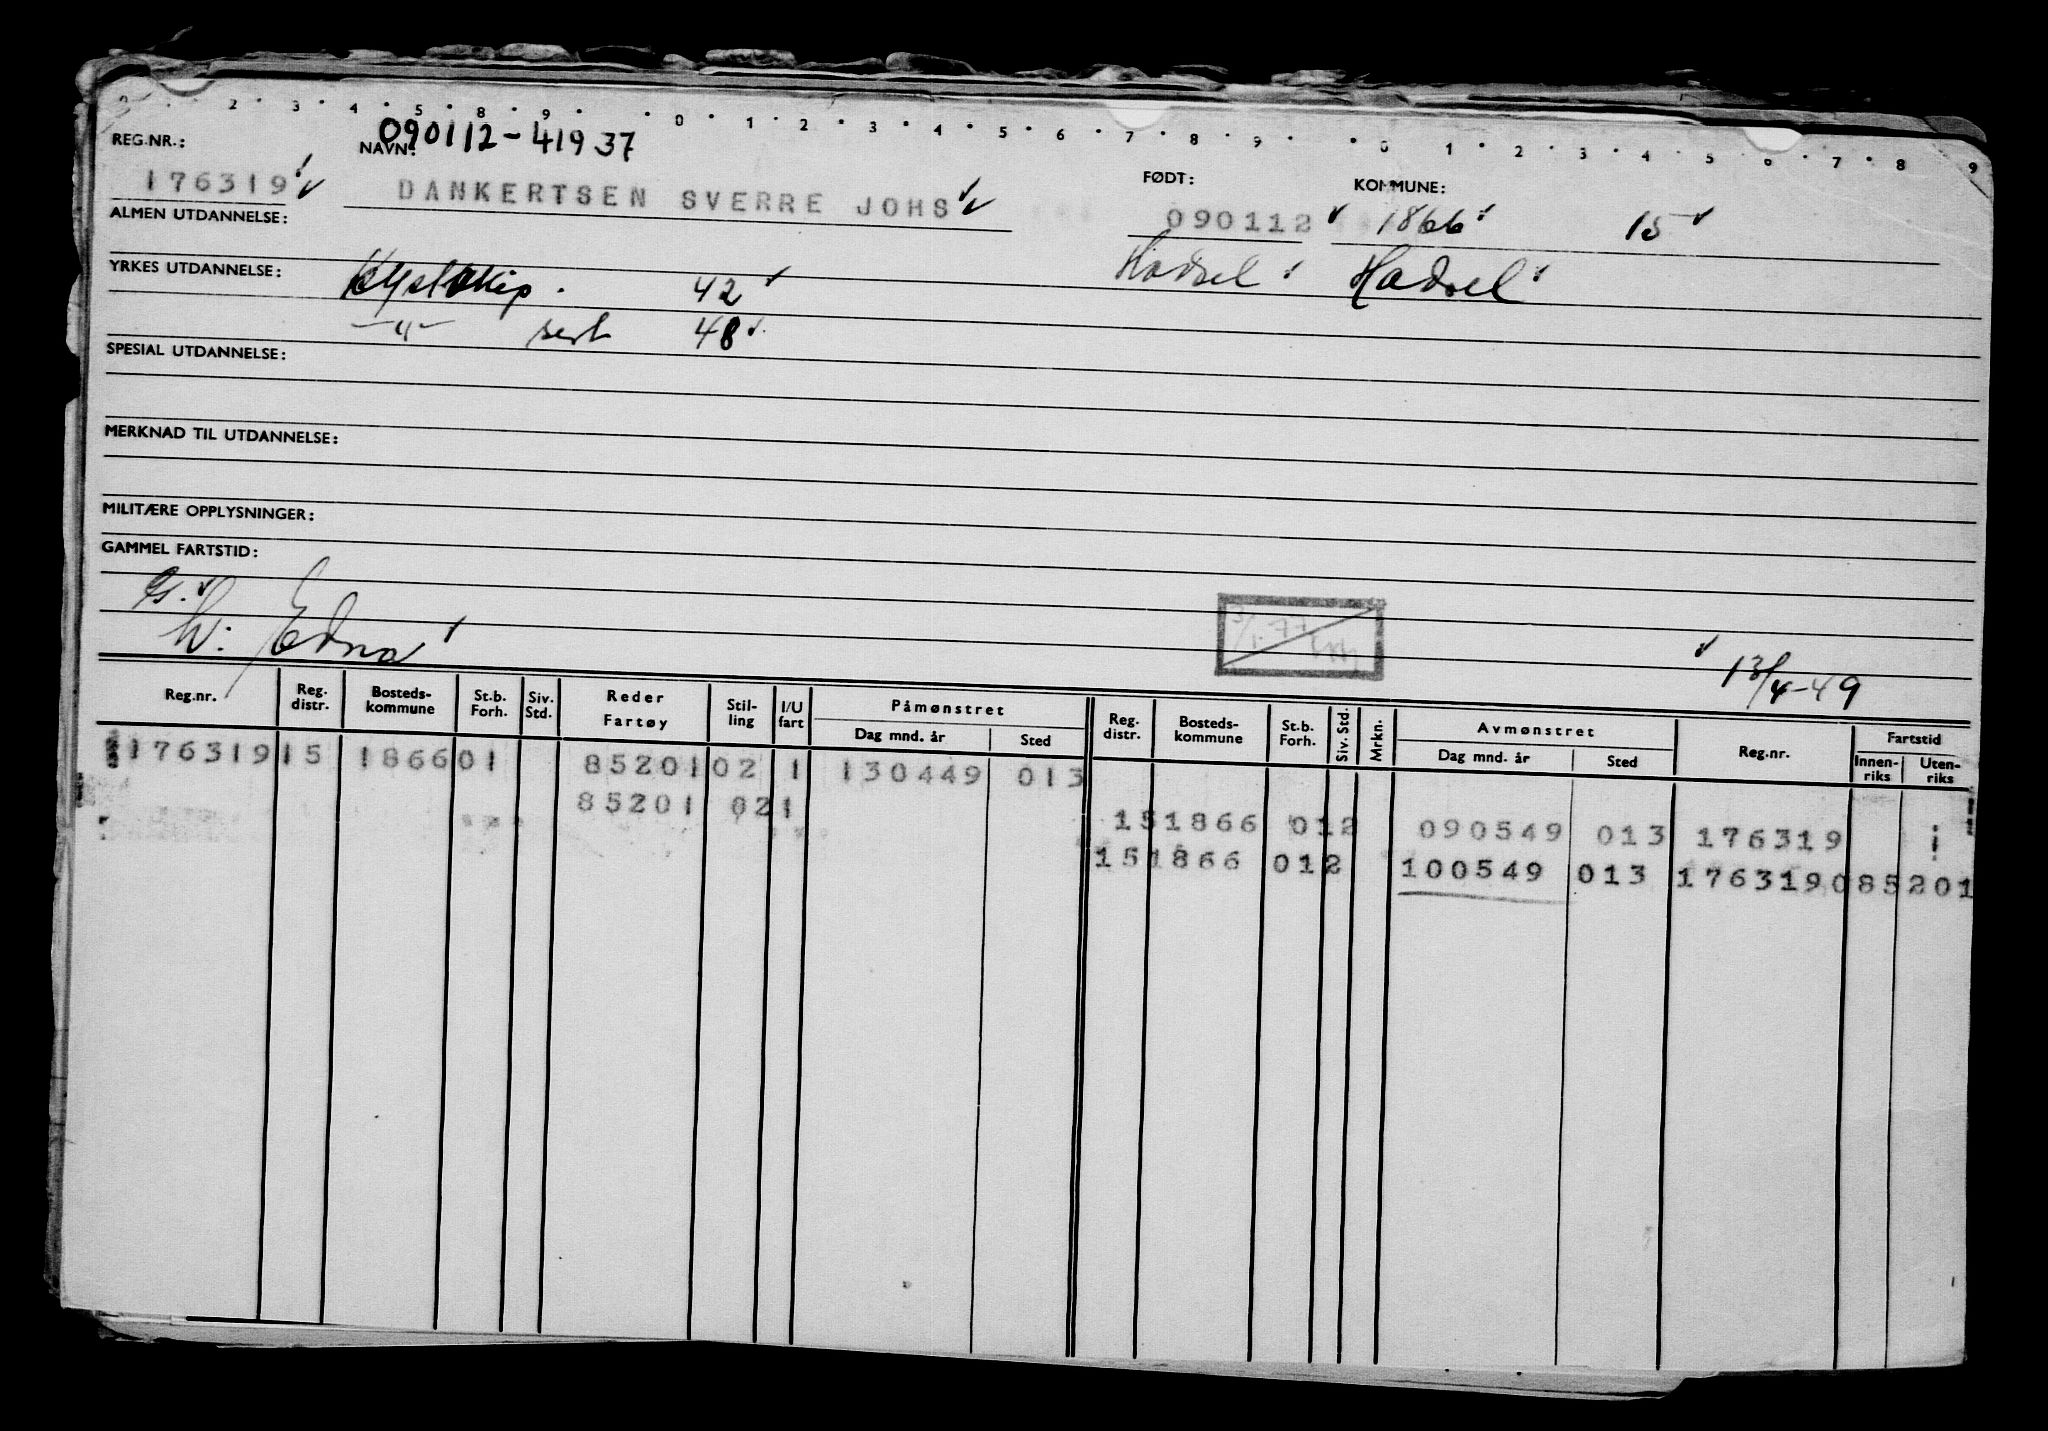 2 3 4 5 8 9 0 1 2 3 4 5 6 7 8 9 0 1 2 3 4 5 6 7 8 9
090112-41937
REG.NR.: NAVN: FØDT: KOMMUNE:
176319 DANKERTSEN SVERRE JOHS 090112 1866 15
ALMEN UTDANNELSE:
Hadsel Hadsel
YRKES UTDANNELSE: Kystskip. 42
—"— sert 48
SPESIAL UTDANNELSE:
MERKNAD TIL UTDANNELSE:
MILITÆRE OPPLYSNINGER:
GAMMEL FARTSTID:
W. Edna 13/4-49
Reg.nr. Reg. distr. Bosteds- kommune St.b. Forh. Siv. Std. Reder Fartøy Stil- ling I/U fart Påmønstret Dag mnd. år Sted Reg. distr. Bosteds- kommune St.b. Forh. Siv. Std. Mrkn. Avmønstret Dag mnd. år Sted Reg.nr. Fartstid Innen- riks Uten- riks
176319 15 1866 01 85201 02 1 130449 013
85201 02 1
15 1866 01 2 090549 013 176319 1
15 1866 01 2 100549 013 176319 085201